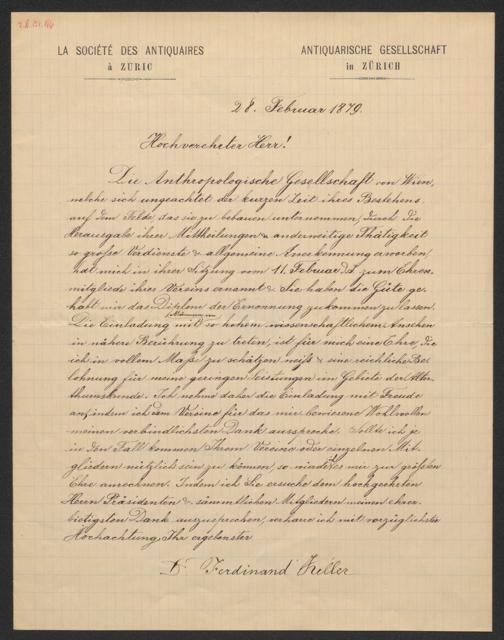 LA SOCIÉTÉ DES ANTIQUAIRES
à ZURIC
ANTIQUARISCHE GESELLSCHAFT
in ZÜRICH
28. Februar 1879.
Hochverehrter Herr!
Die Anthropologische Gesellschaft von Wien,
welche sich ungeachtet der kurzen Zeit ihres Bestehens,
auf dem Felde, das sie zu bebauen unternommen, durch die
Herausgabe ihrer Mittheilungen & anderweitige Thätigkeit
so große Verdienste & allgemeine Anerkennung erworben
hat mich in ihrer Sitzung vom 11. Februar d J. zum Ehren
mitgliede ihres Vereins ernannt & Sie haben die Güte ge-
habt mir das Diplom der Ernennung zukommen zu lassen.
Die Einladung mit Männern von so hohem wissenschaftlichem Ansehen
in nähere Berührung zu treten, ist für mich eine Ehre, die
ich in vollem Maße zu schätzen weiß & eine reichliche Be-
lohnung für meine geringen Leistungen im Gebiete der Alter
thumskunde. Ich nehme daher die Einladung mit Freude
an, indem ich dem Vereine für das mir bewiesene Wohlwollen
meinen verbindlichsten Dank ausspreche. Sollte ich je
in den Fall kommen Ihrem Vereine oder einzelnen Mit-
gliedern nützlich sein zu können, so würde ich es mir zur größten
Ehre anrechnen. Indem ich Sie ersuche dem hochgeehrten
Herrn Präsidenten & sämmtlichen Mitgliedern meinen ehrer
bietigsten Dank auszusprechen, verharre ich mit vorzüglichster
Hochachtung Ihr ergebenster
Dr Ferdinand Keller